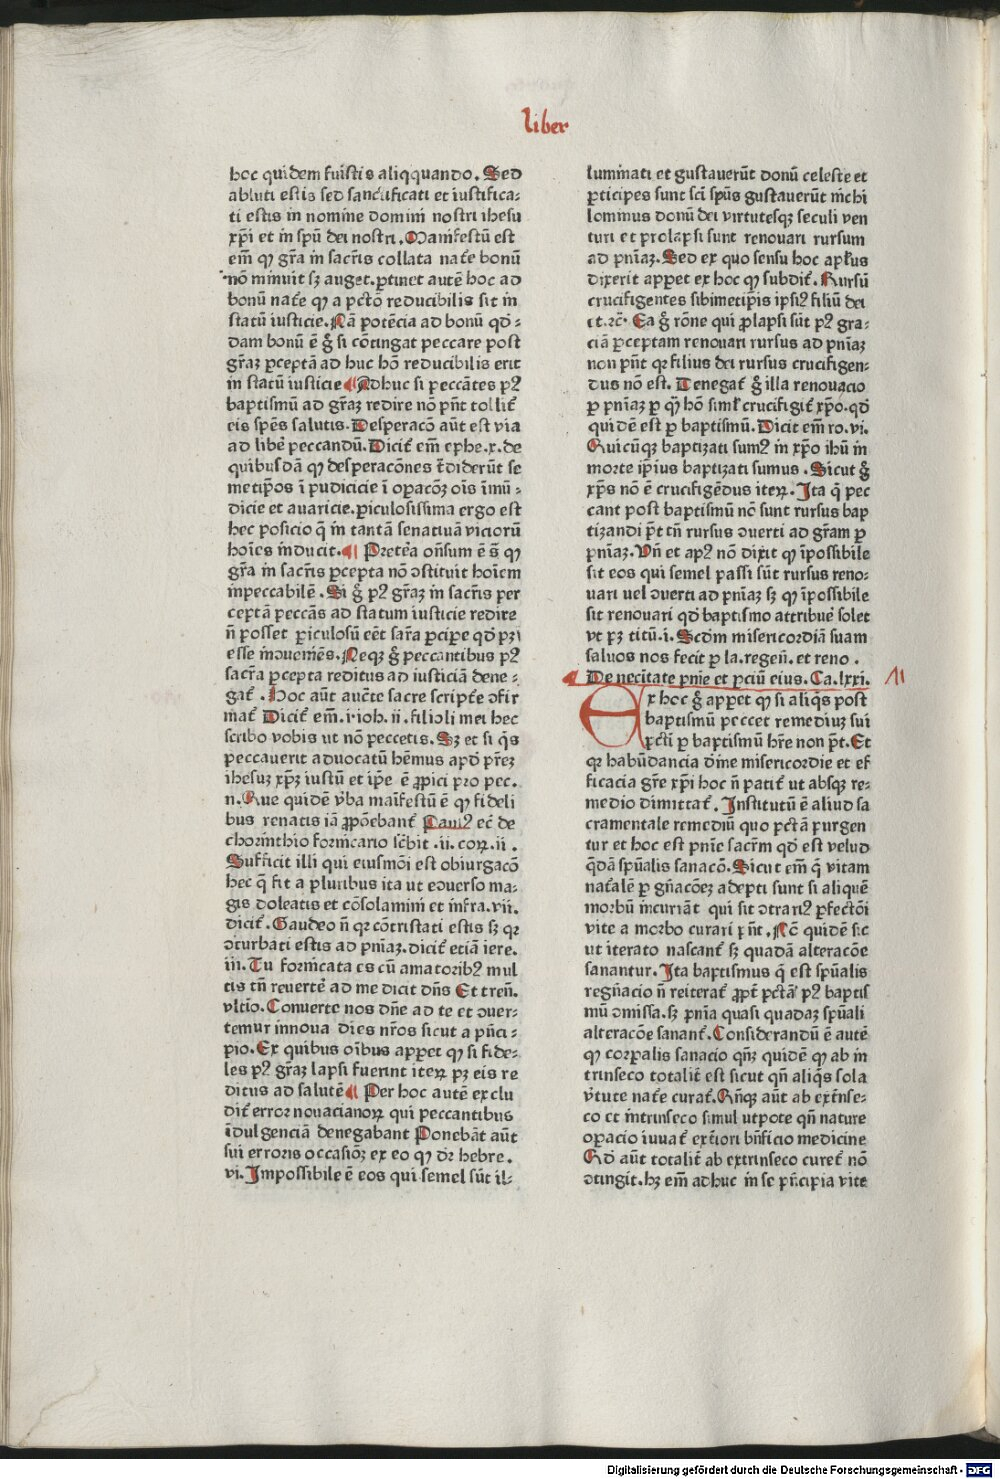 liber
hoc quidem fuistis aliqquando. Sed
abluti estis sed sanctificati et iustifica⸗
ti estis in nomine domini nostri ihesu
xp̄i et in spū dei nostri. Manifestū est
em̄ qꝫ gr̄a in sacr̄is collata nat̄e bonū
nō minuit sꝫ auget. ꝑtinet autē hoc ad
bonū nat̄e qꝫ a pctō reducibilis sit in
statū iusticie. Nā potēcia ad bonū qd̄⸗
dam bonū ē g̊ si cōtingat peccare post
gr̄aꝫ ꝑceptā ad huc hō reducibilis erit
in statū iusticie ¶ Adhuc si peccātes pꝰ
baptismū ad gr̄aꝫ redire nō pn̄t tollit̄
eis spēs salutis. Desperacō aūt est via
ad libē peccandū. Dicit̄ em̄ ephe. x. de
quibusdā qꝫ desperacōnes t̄diderūt se
metip̄os ī pudicicie ī opacōꝫ oīs īmū⸗
dicie et avaricie. ꝑiculosissima ergo est
hec posicio q̄ in tantā senatiuā viciorū
hoīes inducit. ¶ Preter̄a on̄sum ē s̄ qꝫ
gr̄a in sacr̄is ꝑcepta nō ɔstituit hoīem
inpeccabilē. Si g̊ pꝰ gr̄aꝫ in sacr̄is per
ceptā peccās ad statum iusticie redire
n̄ posset ꝑiculosū eēt sac̄ra ꝑcipe qd̄ pꝫ
esse incoueniēs. Neqꝫ g̊ peccantibus pꝰ
sacr̄a ꝑcepta reditus ad iusticiā dene⸗
gat̄. Hoc aūt aucēte sacre scripte ɔfir
mat̄ Dicit̄ em̄. i. ioh. ii. filioli mei hec
scribo vobis ut nō peccetis. Sꝫ et si q̄s
peccauerit aduocatū hēmus apd̄ pr̄eꝫ
ihesuꝫ xp̄ꝫ iustū et ip̄e ē ꝓpici pro pec.
n. Que quidē v̄ba maīfestū ē qꝫ fideli
bus renatis iā ꝓpōebant̄ Paulꝰ ec̄ de
chorinthio fornicario sc̄bit. ii. coꝝ. ii.
Sufficit illi qui eiusmōi est obiurgacō
hec q̄ fit a pluribus ita ut ecōuerso ma⸗
gis doleatis et cōsolamini et infra. vii.
dicit̄. Gaudeo n̄ qꝛ cōtristati estis sꝫ qꝛ
ɔturbati estis ad pn̄iaꝫ. dicit̄ etiā iere.
iii. Tu fornicata es cū amatoribꝰ mul
tis tn̄ reuertē ad me dicit dn̄s Et tren̄.
vltīo. Conuerte nos dn̄e ad te et ɔuer⸗
temur innoua dies nr̄os sicut a pn̄ci⸗
pio. Ex quibus oībus appet qꝫ si fide⸗
les pꝰ gr̄aꝫ lapsi fuerint iteꝝ pꝫ eis re
ditus ad salutē ¶ Per hoc autē exclu
dit̄ error nouacianoꝝ qui peccantibus
īdulgenciā denegabant Ponebāt aūt
sui erroris occasiōꝫ ex eo qꝫ dꝛ hebre.
vi. Impossibile ē eos qui semel sūt il⸗
luminati et gustauerūt donū celeste et
ꝑticipes sunt sc̄i spūs gustauerūt nichi
lominus donū dei virtutesqꝫ seculi ven
turi et prolapsi sunt renouari rursum
ad pn̄iaꝫ. Sed ex quo sensu hoc apl̄us
dixerit appet ex hoc qꝫ subdit̄. Rursū
crucifigentes sibimetip̄is ipsiꝰ filiū dei
it. ꝛc̄. Ea g̊ rōne qui ꝓlapsi sūt pꝰ gra⸗
ciā ꝑceptam renouari rursus ad pn̄iaꝫ
non pn̄t qꝛ filius dei rursus crucifigen⸗
dus nō est. Denegat̄ g̊ illa renouacio
ꝑ pn̄iaꝫ ꝑ qꝫ hō siml̄ crucifigit̄ xp̄o. qd̄
quidē est ꝑ baptismū. Dicit em̄ ro. vi.
Quicūqꝫ baptizati sumꝰ in xp̄o ihū in
morte ip̄ius baptizati sumus. Sicut g̊
xp̄s nō ē crucifigēdus iteꝝ. Ita q̄ pec
cant post baptismū nō sunt rursus bap
tizandi p̄t tn̄ rursus ɔuerti ad gr̄am ꝑ
pn̄iaꝫ. Vn̄ et apꝰ nō dixit qꝫ īpossibile
sit eos qui semel passi sūt rursus reno⸗
uari uel ɔuerti ad pn̄iaꝫ sꝫ qꝫ īpossibile
sit renouari qd̄ baptismo attribuē solet
vt pꝫ titū. i. Scd̄m misericordiā suam
saluos nos fecit ꝑ la. regen̄. et reno.
¶ De necītate pn̄ie et ꝑciū eius. Ca. lxxi.
Ex hoc g̊ appet qꝫ si aliq̄s post
baptismū peccet remediuꝫ sui
pcti ꝑ baptismū hr̄e non p̄t. Et
qꝛ habūdancia d̄ine misericordie et ef
ficacia gr̄e xp̄i hoc n̄ patit̄ ut absqꝫ re⸗
medio dimittat̄. Institutū ē aliud sa
cramentale remediū quo pctā purgen
tur et hoc est pn̄ie sacr̄m qd̄ est velud
q̄dā spūalis sanacō. Sicut em̄ q̄ vitam
nat̄alē ꝑ gn̄acōeꝫ adepti sunt si aliquē
morbū incuriāt qui sit ɔtrariꝰ ꝑfectōi
vite a morbo curari pn̄t. Nō quidē sic
ut iterato nascant̄ sꝫ quadā alteracōe
sanantur. Ita baptismus q̄ est spūalis
regn̄acio n̄ reiterat̄ ꝓpt̄ pctā pꝰ baptis
mū ɔmissa. sꝫ pn̄ia quasi quadaꝫ spūali
alteracōe sanant̄. Considerandū ē autē
qꝫ corꝑalis sanacio qn̄qꝫ quidē qꝫ ab in
trinseco totalit̄ est sicut qn̄ aliq̄s sola
v̄tute nat̄e curat̄. Qn̄qꝫ aūt ab ext̄nse⸗
co et intrinseco simul utpote qn̄ nature
opacio iuuat̄ ext̄iori bn̄ficio medicine
Qd̄ aūt totalit̄ ab extrinseco curet̄ nō
ɔtingit. hꝫ em̄ adhuc in se pn̄cipia vite
Digitalisierung gefördert durch die Deutsche Forschungsgemeinschaft - DFG